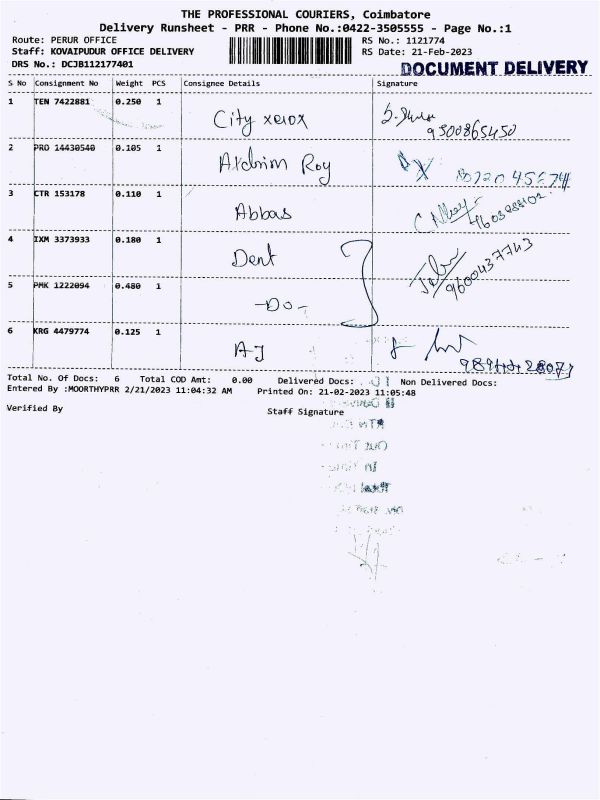 THE PROFESSIONAL COURIERS, Coimbatore
Delivery Runsheet - PRR - Phone No.:0422-3505555 - Page No.:1
Route: PERUR OFFICE
RS No.: 1121774
Staff: KOVAIPUDUR OFFICE DELIVERY
RS Date: 21-Feb-2023
DRS No.: DCJB112177401
DOCUMENT DELIVERY
S No Consignment No Weight PCS Consignee Details Signature
1 TEN 7422881 0.250 1 City xerox
9500865450
2 PRO 14430540 0.105 1 Roy
3 CTR 153178 0.110 1 Abbas
4 IXM 3373933 0.180 1 Dent
9600437743
5 PMK 1222094 0.480 1 -Do-
6 KRG 4479774 0.125 1 AJ
Total No. Of Docs: 6 Total COD Amt: 0.00 Delivered Docs: Non Delivered Docs:
Entered By :MOORTHYPRR 2/21/2023 11:04:32 AM Printed On: 21-02-2023 11:05:48
Verified By Staff Signature